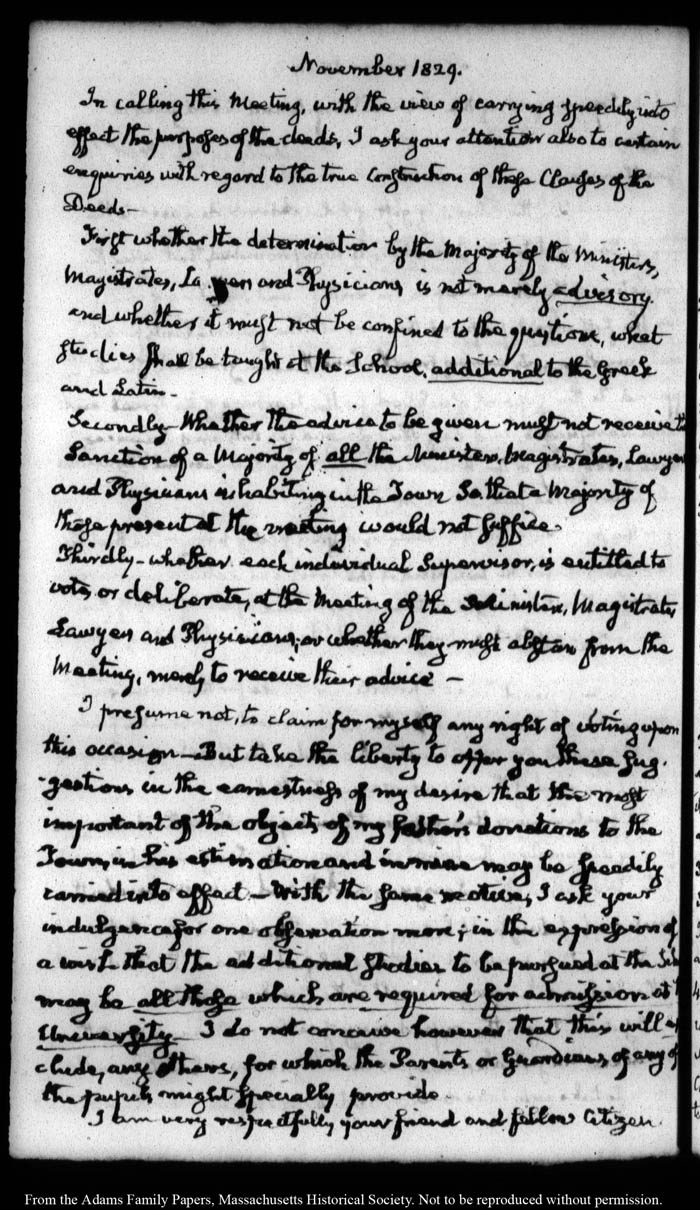 November 1829.
In calling this Meeting, with the view of carrying speedily into
effect the purposes of the deeds, I ask your attention also to certain
enquiries with regard to the true Construction of those Clauses of the
Deeds—
First whether the determination by the Majority of the Ministers,
Magistrates, La yers and Physicians is not merely advisory.
and whether it must not be confined to the question, what
studies shall be taught at the School, additional to the Greek
and Latin—
Secondly—Whether the advice to be given must not receive the
Sanction of a Majority of all the Ministers, Magistrates, Lawyers
and Physicians inhabiting in the Town So that a Majority of
those present at the meeting would not suffice.
Thirdly—whether each individual Supervisor, is entitled to
vote, or deliberate, at the Meeting of the Ministers, Magistrates
Lawyers and Physicians; or whether they must abstain from the
Meeting, merely to receive their advice—
I presume not, to claim for myself any right of voting upon
this occasion—But take the liberty to offer you these sug-
-gestions in the earnestness of my desire that the most
important of the objects of my father's donations to the
Town, in his estimation and in mine may be speedily
carried into effect—With the same motive, I ask your
indulgence for one observation more; in the expression of
a wish that the additional studies to be pursued at the
may be all those which are required for admission at
University—I do not conceive however that this will
clude, any others, for which the Parents or Guardians of any of
the pupils might specially provide.
I am very respectfully your friend and fellow Citizen.
From the Adams Family Papers, Massachusetts Historical Society. Not to be reproduced without permission.